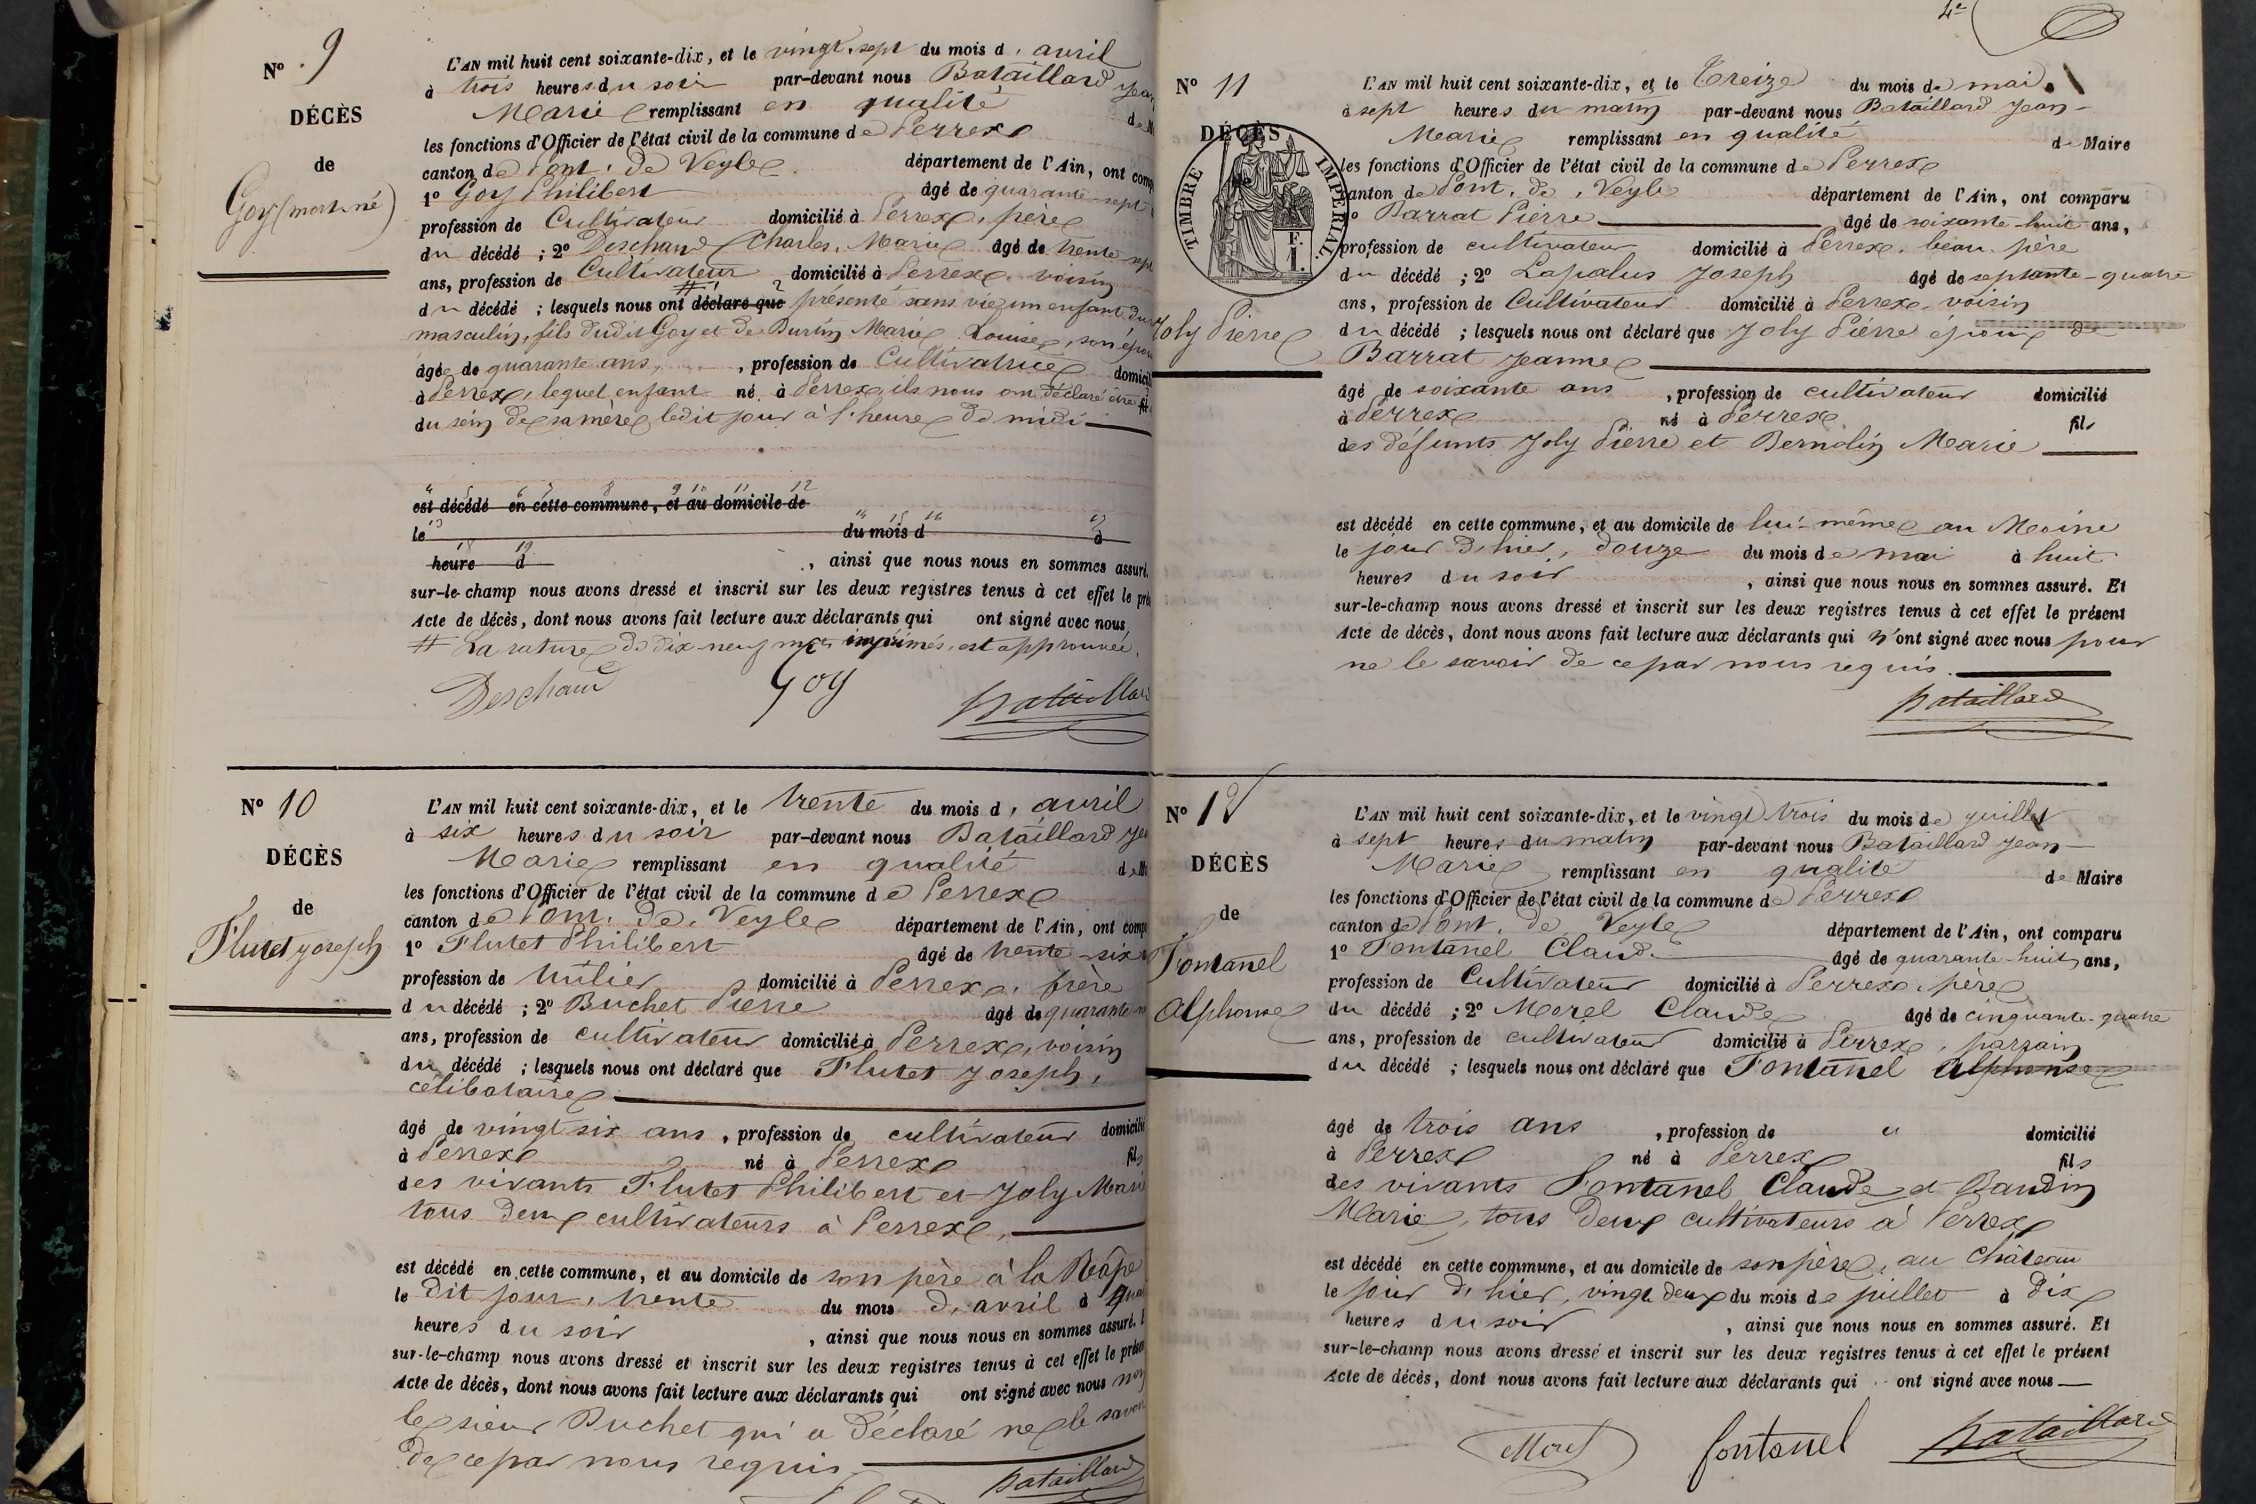 N° 9
DÉCÈS
de
Goy (mort-né)
L'AN mil huit cent soixante-dix, et le vingt-sept du mois d'avril
à trois heures du soir par-devant nous Bataillard Jean
Marie remplissant en qualité de M
les fonctions d'Officier de l'état civil de la commune de Perrex
canton de Pont-de-Veyle département de l'Ain, ont comp
1° Goy Philibert âgé de quarante-sept
profession de Cultivateur domicilié à Perrex, père
du décédé ; 2° Deschamp Charles, Marie âgé de trente sept
ans, profession de Cultivateur domicilié à Perrex, voisin
du décédé ; lesquels nous ont déclaré que présenté sans vie un enfant du
masculin, fils dudit Goy et de Burtin Marie Louise, son épou
âgée de quarante ans, profession de Cultivatrice domicil
à Perrex, lequel enfant né à Perrex, ils nous ont déclaré être
du sein de sa mère ledit jour à l'heure de midi
est décédé en cette commune, et au domicile de
le du mois d à
heure d , ainsi que nous nous en sommes assuré.
sur-le-champ nous avons dressé et inscrit sur les deux registres tenus à cet effet le pré
Acte de décès, dont nous avons fait lecture aux déclarants qui ont signé avec nous,
# La rature de dix-neuf mots imprimés, est approuvée.
Deschamp Goy Bataillard
N° 10
DÉCÈS
de
Flutet Joseph
L'AN mil huit cent soixante-dix, et le trente du mois d'avril
à six heures du soir par-devant nous Bataillard Jea
Marie remplissant en qualité de M
les fonctions d'Officier de l'état civil de la commune de Perrex
canton de Pont-de-Veyle département de l'Ain, ont comp
1° Flutet Philibert âgé de trente-six
profession de domicilié à Perrex, frère
du décédé ; 2° Buchet Pierre âgé de quarante
ans, profession de cultivateur domicilié à Perrex, voisin
du décédé ; lesquels nous ont déclaré que Flutet Joseph,
célibataire
âgé de vingt six ans, profession de cultivateur domicilié
à Perrex né à Perrex fils
des vivants Flutet Philibert et Joly Marie
tous deux cultivateurs à Perrex,
est décédé en cette commune, et au domicile de son père à la Reàpe
le dit jour, trente du mois d'avril à qua
heures du soir , ainsi que nous nous en sommes assuré.
sur-le-champ nous avons dressé et inscrit sur les deux registres tenus à cet effet le présen
Acte de décès, dont nous avons fait lecture aux déclarants qui ont signé avec nous non
le sieur Buchet qui a déclaré ne le savoir
de ce par nous requis
Bataillard
N° 11
DÉCÈS
TIMBRE IMPÉRIAL
Joly Pierre
L'AN mil huit cent soixante-dix, et le treize du mois de mai
à sept heures du matin par-devant nous Bataillard Jean-
Marie remplissant en qualité de Maire
les fonctions d'Officier de l'état civil de la commune de Perrex
canton de Pont-de-Veyle département de l'Ain, ont comparu
Barrat Pierre âgé de soixante-huit ans,
profession de cultivateur domicilié à Perrex, beau-père
du décédé ; 2° Lapalus Joseph âgé de septante-quatre
ans, profession de Cultivateur domicilié à Perrex, voisin
du décédé ; lesquels nous ont déclaré que Joly Pierre époux de
Barrat Jeanne
âgé de soixante ans , profession de cultivateur domicilié
à Perrex né à Perrex fils
des défunts Joly Pierre et Bernolin Marie
est décédé en cette commune, et au domicile de lui-même au Moine
le jour d'hier, douze du mois de mai à huit
heures du soir , ainsi que nous nous en sommes assuré. Et
sur-le-champ nous avons dressé et inscrit sur les deux registres tenus à cet effet le présent
Acte de décès, dont nous avons fait lecture aux déclarants qui n'ont signé avec nous pour
ne le savoir de ce par nous requis.
Bataillard
N° 12
DÉCÈS
de
Fontanel
Alphonse
L'AN mil huit cent soixante-dix, et le vingt trois du mois de juillet
à sept heures du matin par-devant nous Bataillard Jean-
Marie remplissant en qualité de Maire
les fonctions d'Officier de l'état civil de la commune de Perrex
canton de Pont-de-Veyle département de l'Ain, ont comparu
1° Fontanel Claude âgé de quarante-huit ans,
profession de Cultivateur domicilié à Perrex, père
du décédé ; 2° Morel Claude âgé de cinquante-quatre
ans, profession de cultivateur domicilié à Perrex, parrain
du décédé ; lesquels nous ont déclaré que Fontanel Alphonse
âgé de trois ans , profession de " domicilié
à Perrex né à Perrex fils
des vivants Fontanel Claude et Baudin
Marie, tous deux cultivateurs à Perrex
est décédé en cette commune, et au domicile de son père, au Château
le jour d'hier, vingt deux du mois de juillet à dix
heures du soir , ainsi que nous nous en sommes assuré. Et
sur-le-champ nous avons dressé et inscrit sur les deux registres tenus à cet effet le présent
Acte de décès, dont nous avons fait lecture aux déclarants qui ont signé avec nous
Morel fontanel Bataillard